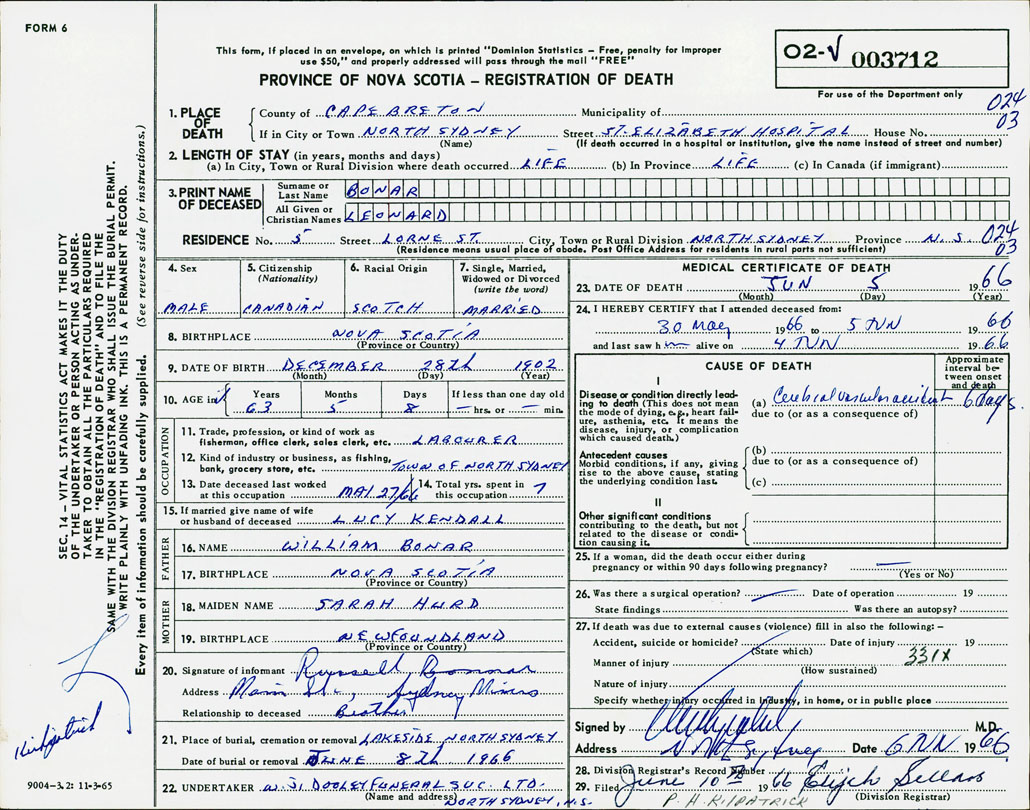 FORM 6
This form, if placed in an envelope, on which is printed "Dominion Statistics – Free, penalty for improper
use $50," and properly addressed will pass through the mail "FREE"
PROVINCE OF NOVA SCOTIA – REGISTRATION OF DEATH
02-√ 003712
For use of the Department only
024
03
1. PLACE OF DEATH
County of CAPE BRETON Municipality of
If in City or Town NORTH SYDNEY Street ST. ELIZABETH HOSPITAL House No.
(Name) (If death occurred in a hospital or institution, give the name instead of street and number)
2. LENGTH OF STAY (in years, months and days)
(a) In City, Town or Rural Division where death occurred LIFE (b) In Province LIFE (c) In Canada (if immigrant)
3. PRINT NAME OF DECEASED
Surname or Last Name BONAR
All Given or Christian Names LEONARD
RESIDENCE No. 5 Street LORNE ST. City, Town or Rural Division NORTH SYDNEY Province N.S. 024
03
(Residence means usual place of abode. Post Office Address for residents in rural parts not sufficient)
4. Sex 5. Citizenship (Nationality) 6. Racial Origin 7. Single, Married, Widowed or Divorced (write the word)
MALE CANADIAN SCOTCH MARRIED
8. BIRTHPLACE NOVA SCOTIA
(Province or Country)
9. DATE OF BIRTH DECEMBER 28th 1902
(Month) (Day) (Year)
10. AGE in Years Months Days If less than one day old
63 5 8 — hrs. or — min.
OCCUPATION
11. Trade, profession, or kind of work as
fisherman, office clerk, sales clerk, etc. LABOURER
12. Kind of industry or business, as fishing,
bank, grocery store, etc. TOWN OF NORTH SYDNEY
13. Date deceased last worked at this occupation MAI 27/66 14. Total yrs. spent in this occupation 7
15. If married give name of wife
or husband of deceased LUCY KENDALL
FATHER
16. NAME WILLIAM BONAR
17. BIRTHPLACE NOVA SCOTIA
(Province or Country)
MOTHER
18. MAIDEN NAME SARAH HURD
19. BIRTHPLACE NEWFOUNDLAND
(Province or Country)
20. Signature of informant Russell Bonnar
Address Main St., Sydney Mines
Relationship to deceased Brother
21. Place of burial, cremation or removal LAKESIDE NORTH SYDNEY
Date of burial or removal JUNE 8th 1966
22. UNDERTAKER W. J. DOOLEY FUNERAL SVC. LTD.
(Name and address) NORTH SYDNEY, N.S.
MEDICAL CERTIFICATE OF DEATH
23. DATE OF DEATH JUN 5 1966
(Month) (Day) (Year)
24. I HEREBY CERTIFY that I attended deceased from:
30 May 1966 to 5 JUN 1966
and last saw h im alive on 4 JUN 1966
CAUSE OF DEATH
Approximate interval between onset and death
I
Disease or condition directly leading to death (This does not mean the mode of dying, e.g., heart failure, asthenia, etc. It means the disease, injury, or complication which caused death.)
(a) Cerebral vascular accident 6 days.
due to (or as a consequence of)
Antecedent causes
Morbid conditions, if any, giving rise to the above cause, stating the underlying condition last.
(b)
due to (or as a consequence of)
(c)
II
Other significant conditions
contributing to the death, but not related to the disease or condition causing it.
25. If a woman, did the death occur either during
pregnancy or within 90 days following pregnancy? —
(Yes or No)
26. Was there a surgical operation? — Date of operation 19
State findings Was there an autopsy?
27. If death was due to external causes (violence) fill in also the following: –
Accident, suicide or homicide? Date of injury 19
(State which)
Manner of injury 331X
(How sustained)
Nature of injury
Specify whether injury occurred in industry, in home, or in public place
Signed by M.D.
Address Sydney Date 6 JUN 1966
28. Division Registrar's Record Number
29. Filed June 10th 1966 Elijah Sellars
(Division Registrar)
P. H. KILPATRICK
SEC. 14 – VITAL STATISTICS ACT MAKES IT THE DUTY
OF THE UNDERTAKER OR PERSON ACTING AS UNDER-
TAKER TO OBTAIN ALL THE PARTICULARS REQUIRED
IN THE "REGISTRATION OF DEATH" AND TO FILE THE
SAME WITH THE DIVISION REGISTRAR WHO SHALL ISSUE THE BURIAL PERMIT.
WRITE PLAINLY WITH UNFADING INK. THIS IS A PERMANENT RECORD.
Every item of information should be carefully supplied. (See reverse side for instructions.)
Kirkpatrick
9004-3.2: 11-3-65